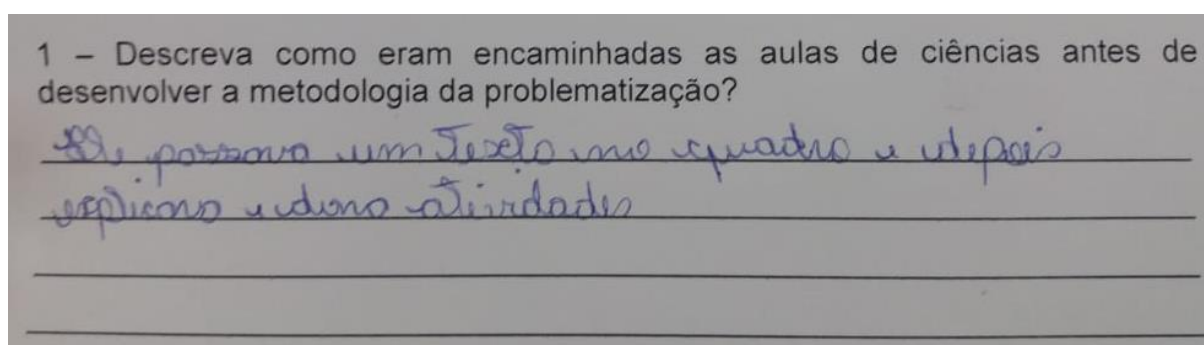 1 – Descreva como eram encaminhadas as aulas de ciências antes de
desenvolver a metodologia da problematização?
Ele passava um Texto no quadro e depois
explicava e dava atividades